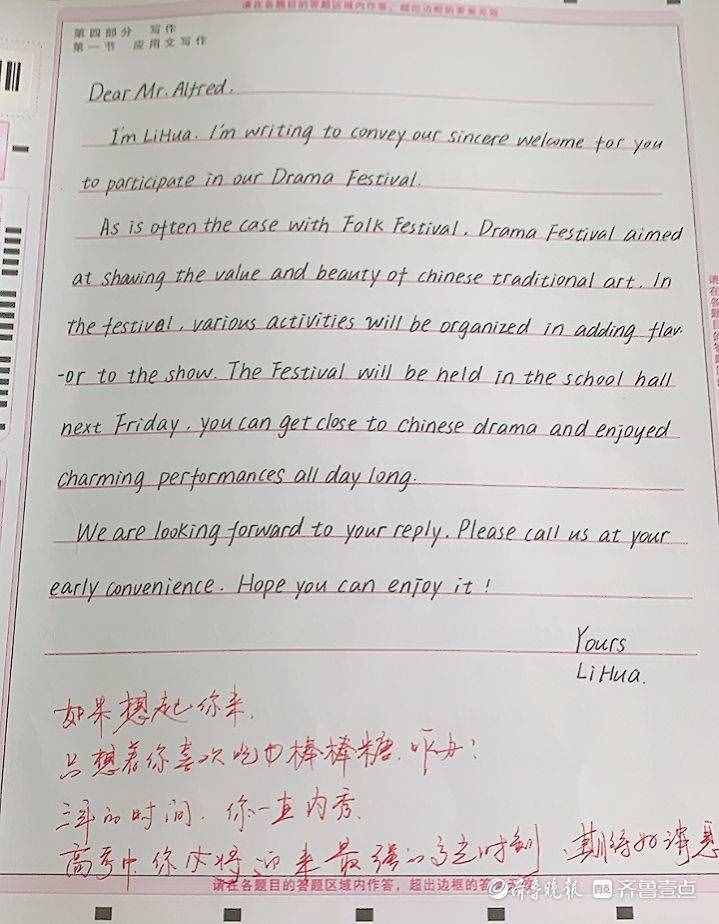 请在各题目的答题区域内作答，超出边框的答案无效
第四部分 写作
第一节 应用文写作
Dear Mr. Alfred.
I'm LiHua. I'm writing to convey our sincere welcome for you
to participate in our Drama Festival.
As is often the case with Folk Festival, Drama Festival aimed
at shaving the value and beauty of chinese traditional art. In
the festival, various activities will be organized in adding flav-
-or to the show. The Festival will be held in the school hall
next Friday, you can get close to chinese drama and enjoyed
charming performances all day long.
We are looking forward to your reply. Please call us at your
early convenience. Hope you can enjoy it!
Yours
LiHua.
如果想起你来，
只想着你喜欢吃的棒棒糖，咋办？
三年的时间，你一直内秀，
高考中你必将迎来最强的高光时刻，期待好消息
请在各题目的答题区域内作答，超出边框的答
齐鲁晚报 齐鲁壹点